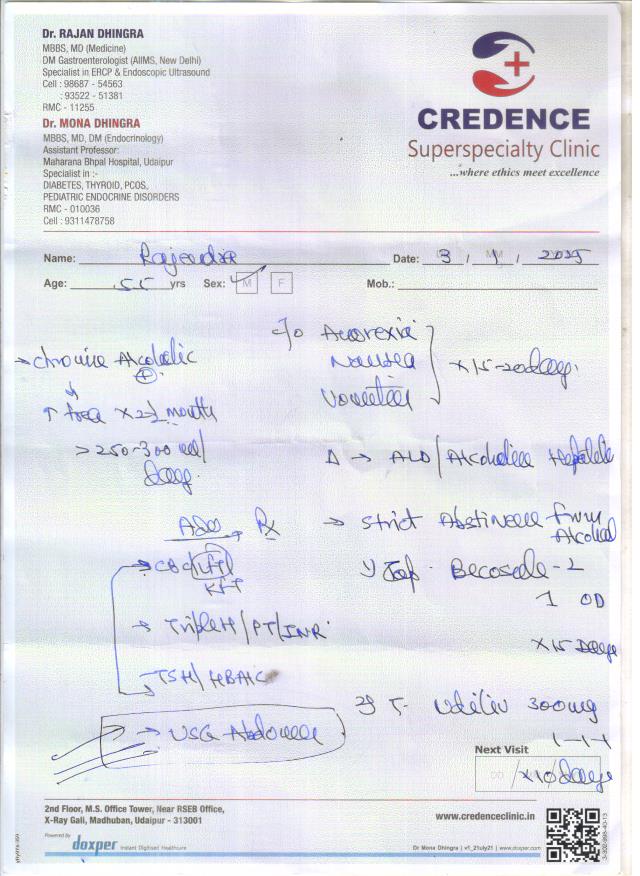 Dr. RAJAN DHINGRA
MBBS, MD (Medicine)
DM Gastroenterologist (AIIMS, New Delhi)
Specialist in ERCP & Endoscopic Ultrasound
Cell : 98687 - 54563
: 93522 - 51381
RMC - 11255
Dr. MONA DHINGRA
MBBS, MD, DM (Endocrinology)
Assistant Professor:
Maharana Bhpal Hospital, Udaipur
Specialist in :-
DIABETES, THYROID, PCOS,
PEDIATRIC ENDOCRINE DISORDERS
RMC - 010036
Cell : 9311478758
CREDENCE
Superspecialty Clinic
...where ethics meet excellence
Name: Date: 3 / 1 / 2025
Age: 55 yrs Sex: M F Mob.:
c/o Anorexia
Nausea
Vomiting
x 15-20 days.
→ chronic Alcoholic
+
↓
↑ x 2-3 months
> 250-300 ml/
day
Δ → ALD/Alcoholic Hepatitis
Adv Rx
→ CBC/LFT/
KFT
→ Triple H/PT/INR
→ TSH/HBA1C
→ USG Abdomen
→ Strict Abstinence from
Alcohol
1) Cap. Becosule-Z
1 OD
x 15 Days
2) T- Udiliv 300mg
1-1-1
x 10 days
Next Visit
2nd Floor, M.S. Office Tower, Near RSEB Office,
X-Ray Gali, Madhuban, Udaipur - 313001
www.credenceclinic.in
Powered By
doxper Instant Digitised Healthcare
Dr Mona Dhingra | v1_21july21 | www.doxper.com